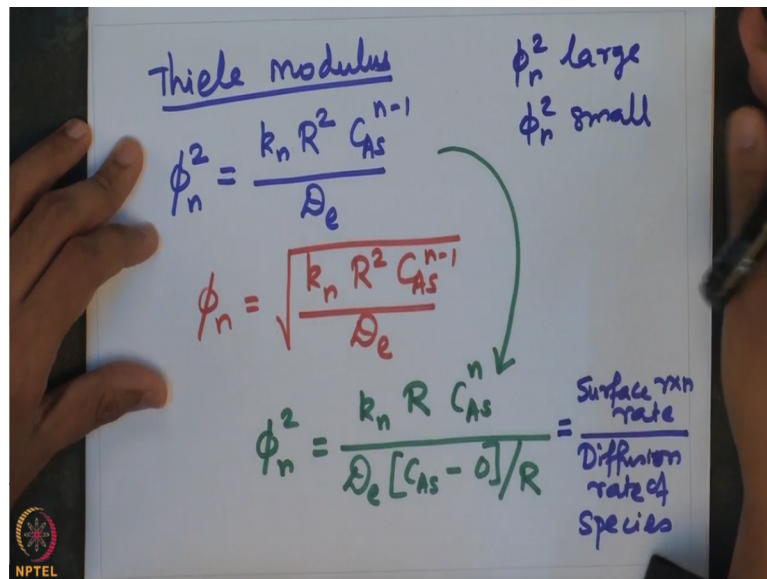 Thiele modulus
ϕₙ² = kₙ R² C_AS^(n-1) / 𝒟ₑ
ϕₙ² large
ϕₙ² small
ϕₙ = √(kₙ R² C_AS^(n-1) / 𝒟ₑ)
ϕₙ² = kₙ R C_AS^n / 𝒟ₑ [C_AS - 0]/R = Surface rxn
rate
Diffusion
rate of
Species
NPTEL